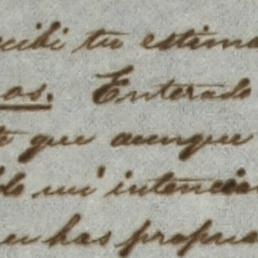 ecibi tu estima
os. Enterado
que aunque
do mi intencio
has propue